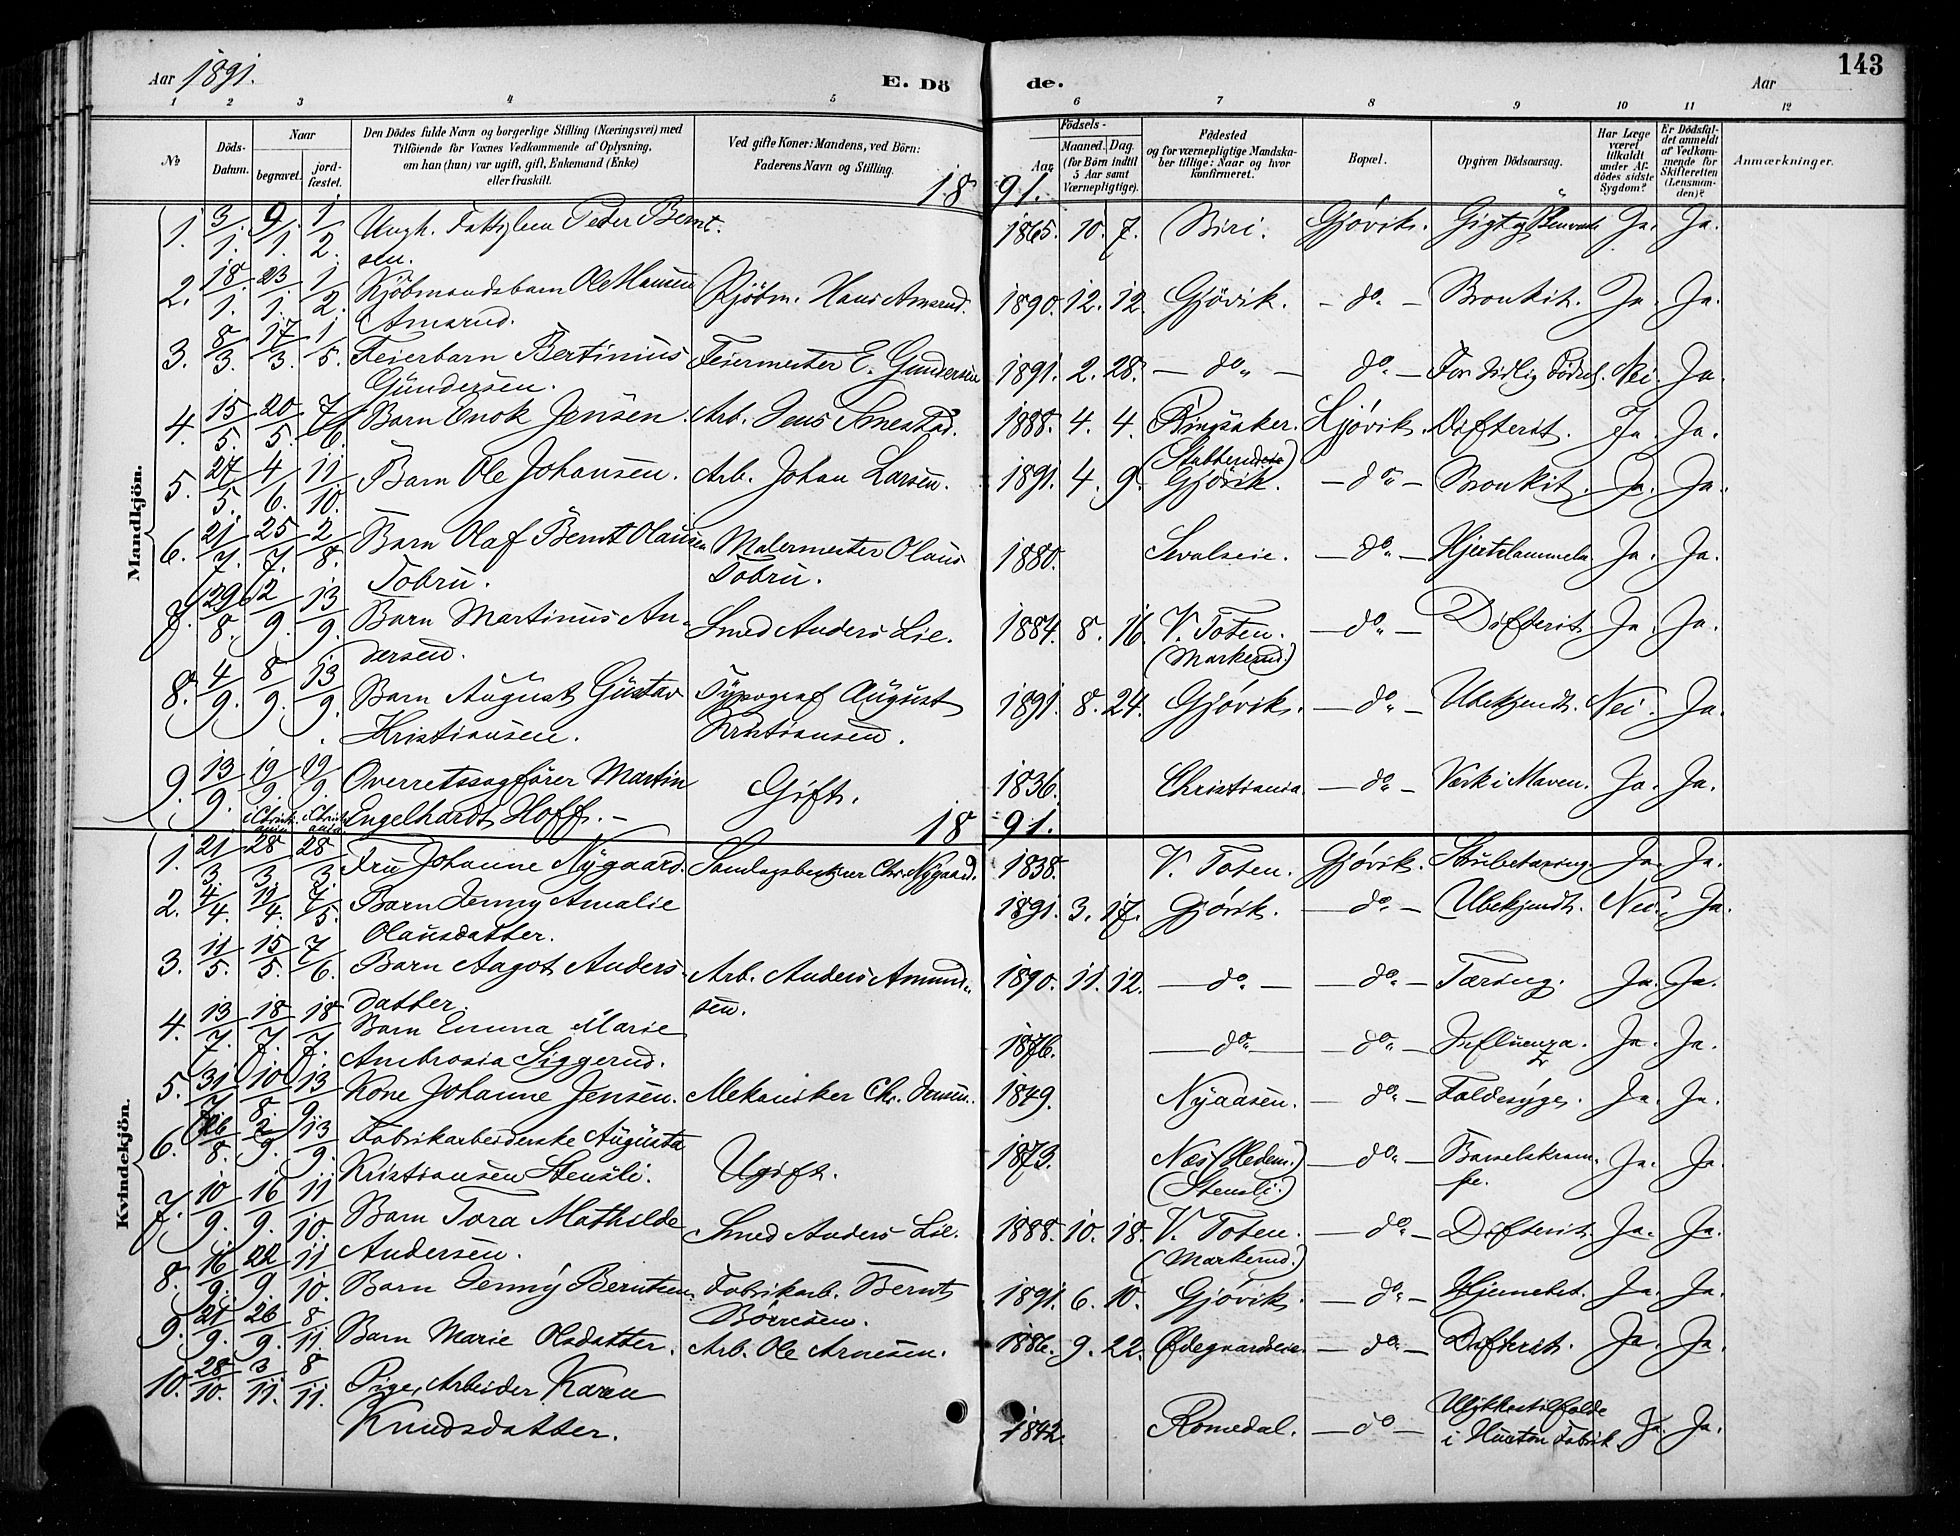 Aar 1891. E. Dö de. Aar 143
1 2 3 4 5 6 7 8 9 10 11 12
No
Döds-Datum.
Naar begravet. jordfæstet.
Den Dödes fulde Navn og borgerlige Stilling (Næringsvei) med Tilföiende for Voxnes Vedkommende af Oplysning, om han (hun) var ugift, gift, Enkemand (Enke) eller fraskilt.
Ved gifte Koner: Mandens, ved Börn: Faderens Navn og Stilling.
Födsels-
Aar. Maaned. Dag. (for Börn indtil 5 Aar samt Værnepligtige).
Födested og for værnepligtige Mandskaber tillige: Naar og hvor konfirmeret.
Bopæl.
Opgiven Dödsaarsag.
Har Læge været tilkaldt under Afdödes sidste Sygdom?
Er Dödsfaldet anmeldt af Vedkommende for Skifteretten (Lensmanden)?
Anmærkninger.
Mandkjön.
1891.
1. 3/1. 9/1. 1/2. Ungk. Peder Berntsen 1865. 10. 7. Biri. Gjövik. Gigt og Ja. Ja.
2. 18/1. 23/1. 1/2. Kjöbmandsbarn Ole Hansen Amarud. Kjöbm. Hans Amarud. 1890. 12. 12. Gjövik. – do – Bronkit. Ja. Ja.
3. 8/3. 17/3. 1/5. Feierbarn Bertinius Gundersen. Feiermester E. Gundersen 1891. 2. 28. – do – do – For tidlig Födsel. Nei. Ja.
4. 15/5. 20/5. 7/6. Barn Enok Jensen. Arb. Jens Smestad. 1888. 4. 4. Ringsaker. Gjövik. Difterit. Ja. Ja.
5. 27/5. 4/6. 11/10. Barn Ole Johansen. Arb. Johan Larsen. 1891. 4. 9. Gjövik. – do – Bronkit. Ja. Ja.
6. 21/7. 25/7. 2/8. Barn Olaf Bernt Olausen Tobru. Malermester Olaus Tobru. 1880. – do – Ja. Ja.
7. 29/8. 2/9. 13/9. Barn Martinus Andersen. Smed Anders Lie. 1884. 8. 16. V. Toten. (Markerud.) – do – Difterit Ja. Ja.
8. 4/9. 8/9. 13/9. Barn August Gustav Kristiansen. Typograf August Kristiansen. 1891. 8. 24. Gjövik. – do – Ubekjendt. Nei. Ja.
9. 13/9. 19/9. 19/9. i Christiania i Christiania Overretssagförer Martin Engelhardt Hoff. – Gift. 1836. Christiania. – do – Værk i Maven. Ja. Ja.
Kvindekjön.
1891.
1. 21/3. 28/3. 28/3. Fru Johanne Nygaard. Chr. Nygaard. 1838. V. Toten. Gjövik. Ja. Ja.
2. 4/4. 12/4. 7/5. Barn Jenny Amalie Olausdatter. 1891. 3. 17. Gjövik. – do – Ubekjendt. Nei. Ja.
3. 11/5. 15/5. 7/6. Barn Aagot Andersdatter. Arb. Anders Amundsen. 1890. 11. 12. – do – – do – Tæring. Ja. Ja.
4. 13/7. 18/7. 18/7. Barn Emma Marie Ambrosia Siggerud. 1876. – do – – do – Influenza. Ja. Ja.
5. 31/7. 10/8. 13/9. Kone Johanne Jensen. Mekaniker Chr. Jensen. 1849. Nyaasen. – do – Faldesyge. Ja. Ja.
6. 26/8. 2/9. 13/9. Fabrikarbeiderske Augusta Kristiansen Stensli. Ugift. 1873. Næs (Hedem.) (Stensli.) – do – Barselskrampe. Ja. Ja.
7. 10/9. 16/9. 11/10. Barn Tora Mathilde Andersen. Smed Anders Lie. 1888. 10. 18. V. Toten. (Markerud.) – do – Difterit. Ja. Ja.
8. 16/9. 22/9. 11/10. Barn Jenny Berntsen. Fabrikarb. Bernt Börresen. 1891. 6. 10. Gjövik. – do – Ja. Ja.
9. 21/9. 26/9. 8/11. Barn Marie Olsdatter. Arb. Ole Arnesen. 1886. 9. 22. Ödegaardseie. – do – Difterit. Ja. Ja.
10. 28/10. 3/11. 8/11. Pige, Arbeider Karen Knudsdatter. 1842. Romedal. – do – Ulykkestilfælde i Hunton Fabrik Ja. Ja.